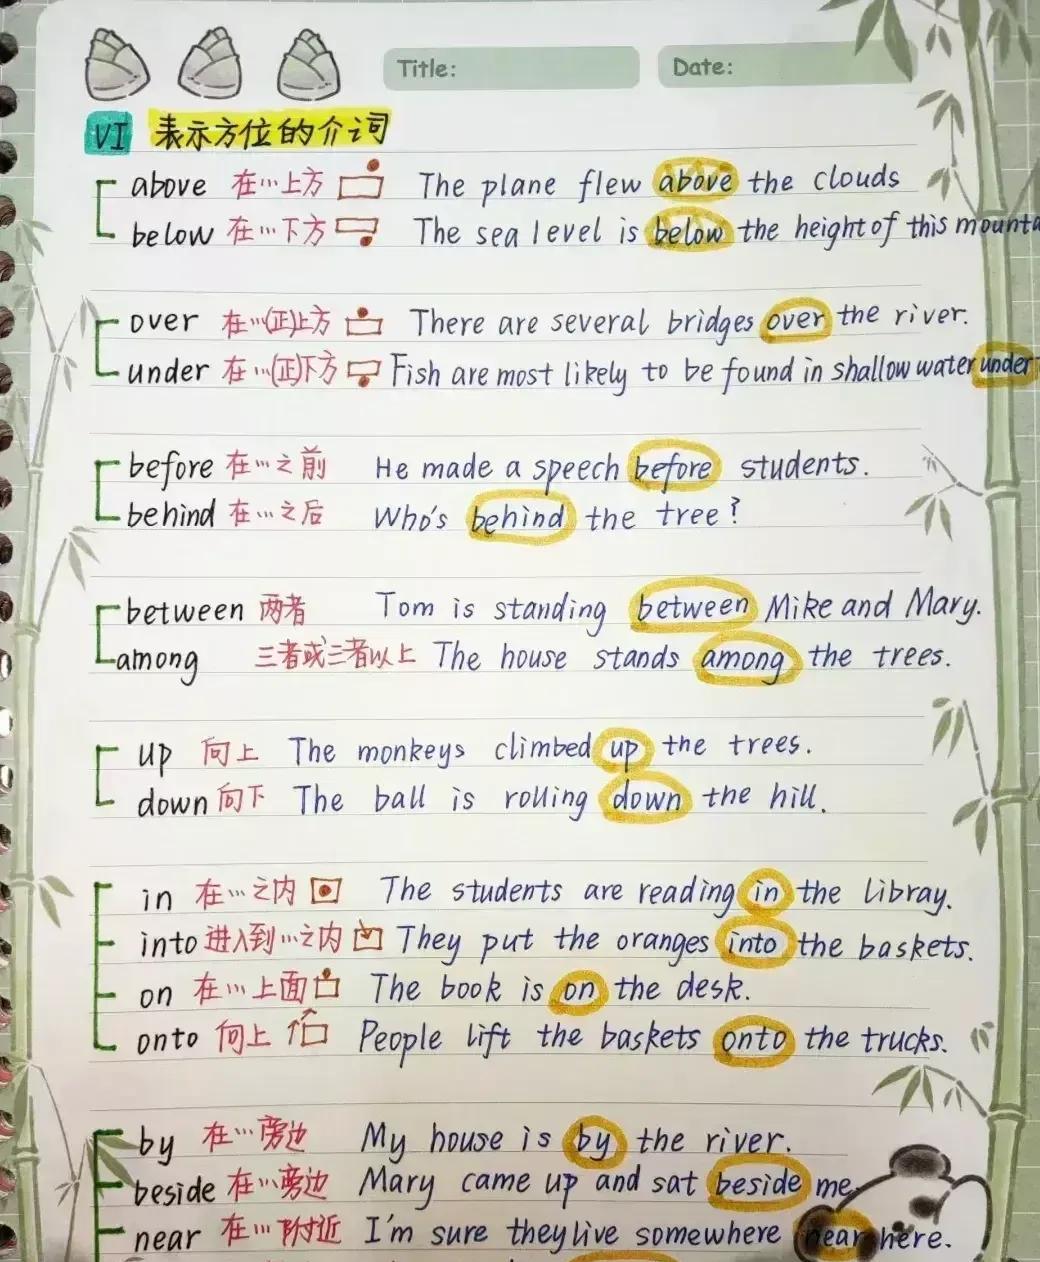 Title:
Date:
VI 表示方位的介词
above 在…上方 The plane flew above the clouds
below 在…下方 The sea level is below the height of this mounta
over 在…(正)上方 There are several bridges over the river.
under 在…(正)下方 Fish are most likely to be found in shallow water under
before 在…之前 He made a speech before students.
behind 在…之后 Who's behind the tree?
between 两者 Tom is standing between Mike and Mary.
among 三者或三者以上 The house stands among the trees.
up 向上 The monkeys climbed up the trees.
down 向下 The ball is rolling down the hill.
in 在…之内 The students are reading in the libray.
into 进入到…之内 They put the oranges into the baskets.
on 在…上面 The book is on the desk.
onto 向上 People lift the baskets onto the trucks.
by 在…旁边 My house is by the river.
beside 在…旁边 Mary came up and sat beside me.
near 在…附近 I'm sure they live somewhere near here.